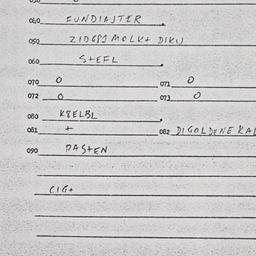 040 FUNDIAJTER
050 MOLK+ DIKU
060 STEFL
070 0 071 0
072 0 073 0
080 K8ELBL
081 + 082 DIGOLDENE KAL
090 PASTEN
CIG+